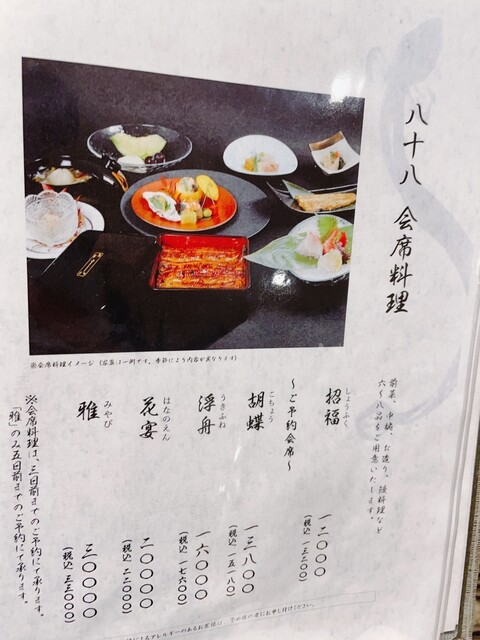 八十八 会席料理
前菜、中鉢、お造り、強肴など
六〜八品をご用意いたします。
※会席料理イメージ（器等は一例です。季節により内容が異なります）
しょうふく
招福
一二〇〇〇
（税込 一三二〇〇）
〜ご予約会席〜
こちょう
胡蝶
一三八〇〇
（税込 一五一八〇）
うきふね
浮舟
一六〇〇〇
（税込 一七六〇〇）
はなのえん
花宴
二〇〇〇〇
（税込 二二〇〇〇）
みやび
雅
三〇〇〇〇
（税込 三三〇〇〇）
※会席料理は、三日前までのご予約にて承ります。
「雅」のみ五日前までのご予約にて承ります。
によるアレルギーのあるお客様は、予め係の者にお申し付けください。